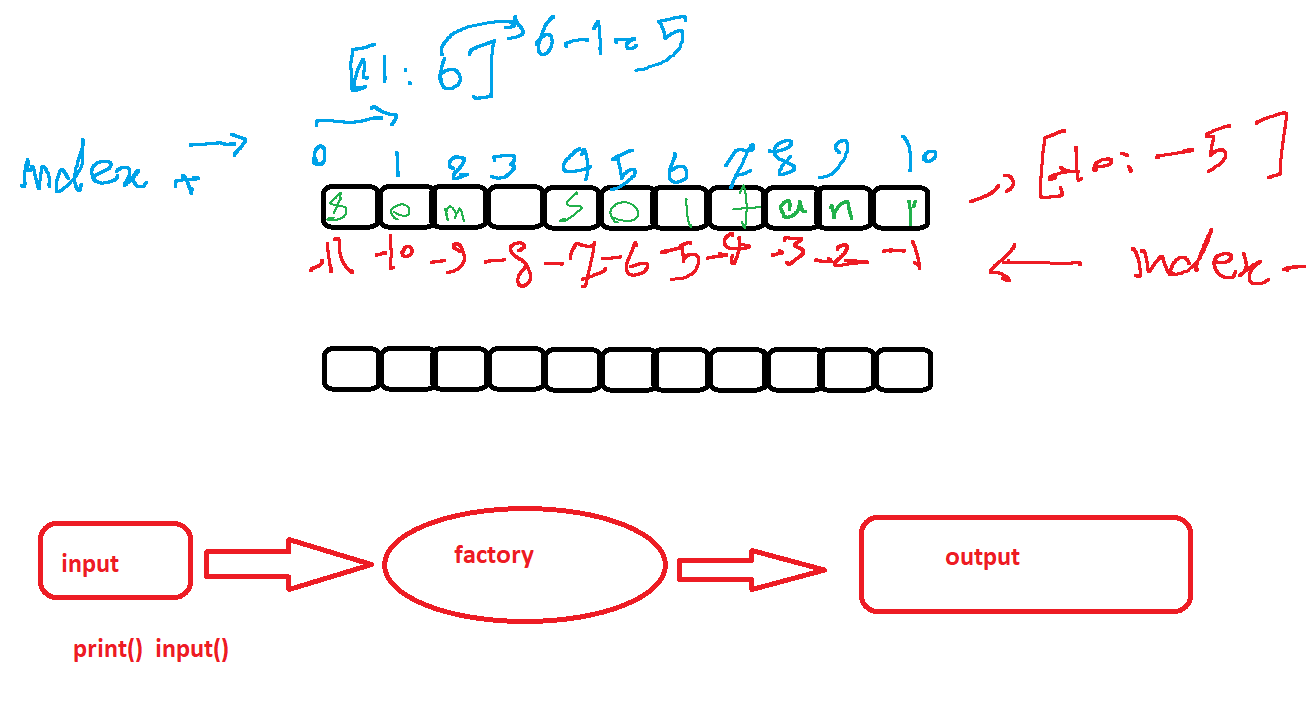 [1: 6] 6-1=5
index + 0 1 2 3 4 5 6 7 8 9 10
s o m s o l t a n y [-10: -5]
-11 -10 -9 -8 -7 -6 -5 -4 -3 -2 -1 index -
input factory output
print() input()